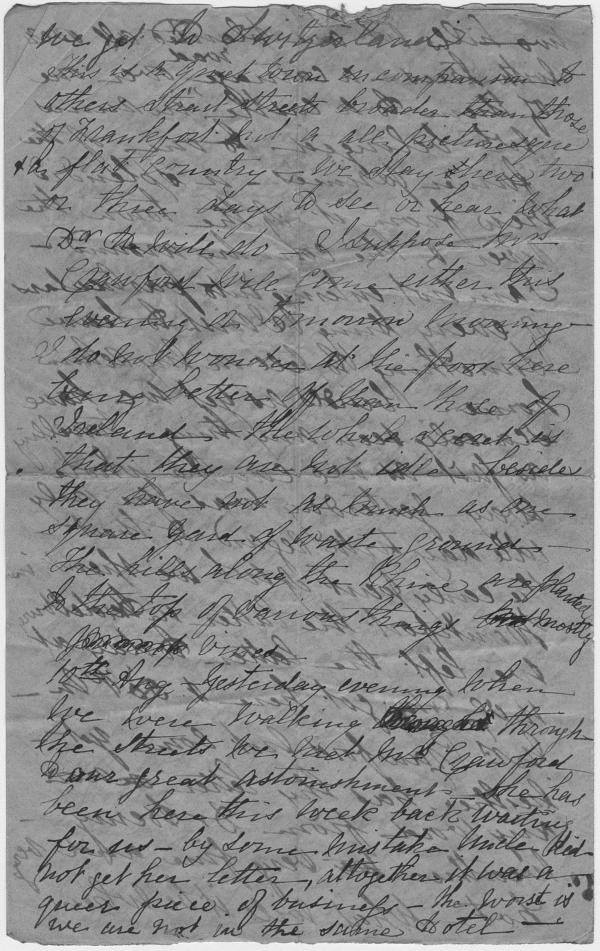 we get to Switzerland
This is a quiet town in comparison to
others Strait streets broader than those
of Frankfort but a all picturesque
& a flat country - We stay here two
or three days to see or hear what
Dr will do - I suppose Mrs
Crawford will come either this
evening or tomorrow morning -
I do not wonder at the poor here
being better off than those of
Ireland - the whole secret is
that they are not idle besides
they have not as much as one
square yard of waste ground -
The hills along the Rhine are planted
to the top of various things mostly
vines -
10th Aug - Yesterday evening when
we were walking through
the streets we met Mrs Crawford
to our great astonishment - she has
been here this week back waiting
for us - by some mistake Uncle did
not get her letter, altogether it was a
queer piece of business - the worst is
we are not in the same Hotel -